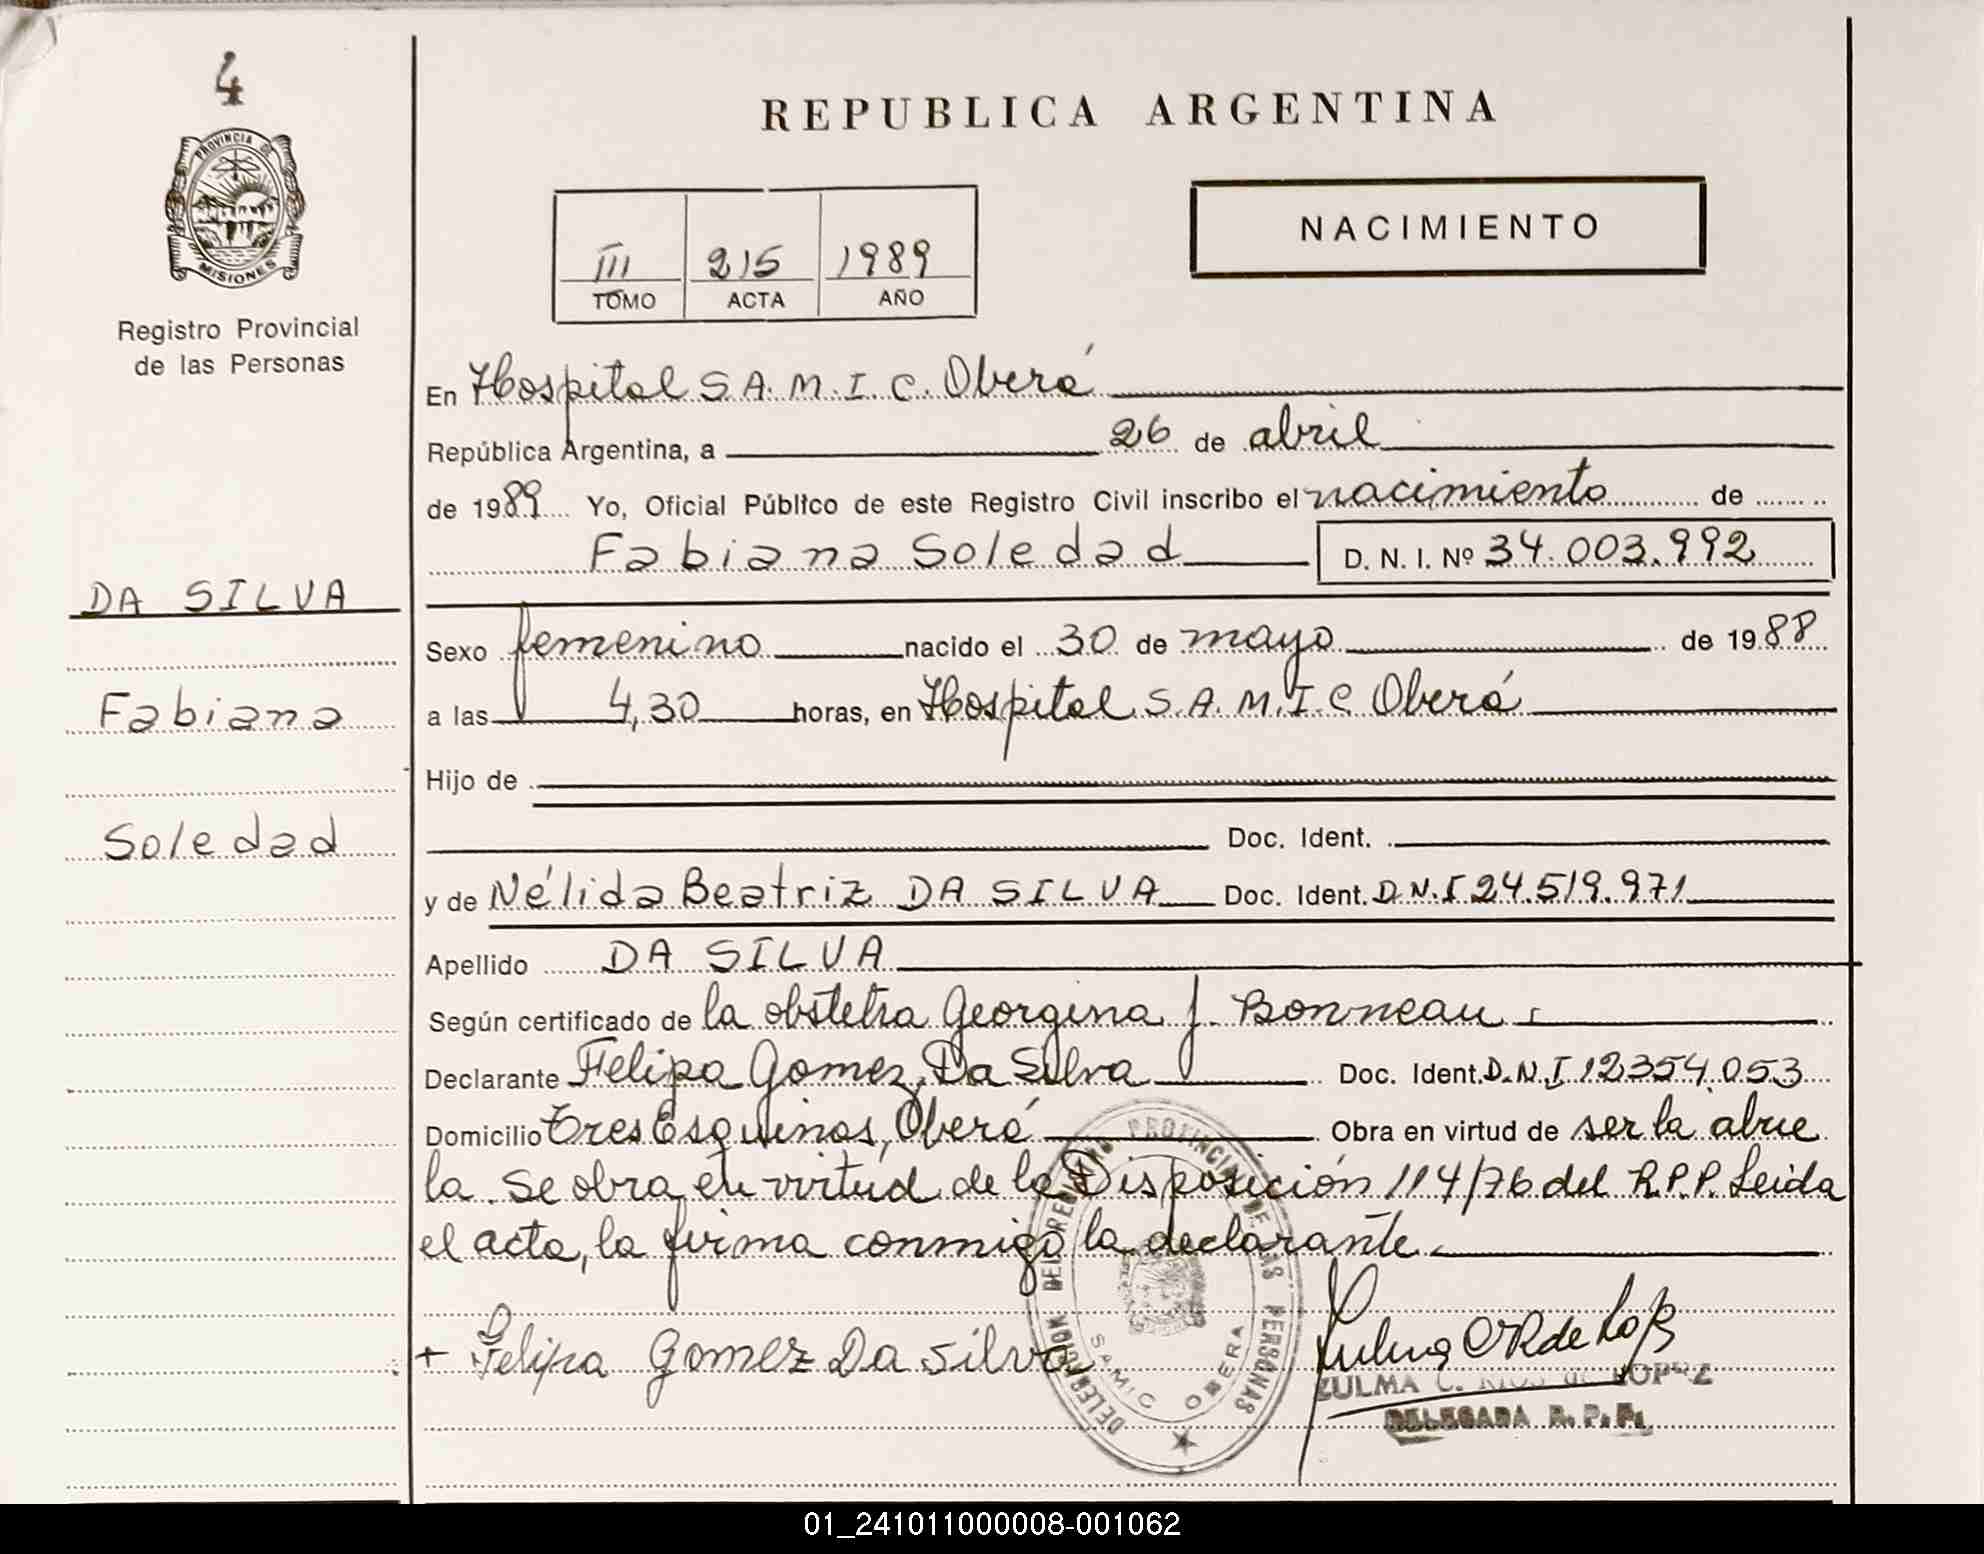 4
PROVINCIA DE
MISIONES
Registro Provincial
de las Personas
DA SILVA
Fabiana
Soledad
REPUBLICA ARGENTINA
NACIMIENTO
III 215 1989
TOMO ACTA AÑO
En Hospital S.A.M.I.C. Oberá
República Argentina, a 26 de abril
de 1989 Yo, Oficial Público de este Registro Civil inscribo el nacimiento de
Fabiana Soledad D. N. I. Nº 34.003.992
Sexo femenino nacido el 30 de mayo de 1988
a las 4,30 horas, en Hospital S.A.M.I.C Oberá
Hijo de
Doc. Ident.
y de Nélida Beatriz DA SILVA Doc. Ident. D.N.I 24.519.971
Apellido DA SILVA
Según certificado de la obstetra Georgina J. Bonneau
Declarante Felipa Gomez Da Silva Doc. Ident. D.N.I 12354.053
Domicilio Tres Esquinas, Oberá Obra en virtud de ser la abue
la. Se obra en virtud de la Disposición 114/76 del R.P.P. Leida
el acta, la firma conmigo la declarante.
+ Felipa Gomez Da silva
DEL REGISTRO PROVINCIAL DE LAS PERSONAS
SAMIC OBERA
ZULMA C. RIOS de LOPEZ
DELEGADA R. P. P.
01_241011000008-001062